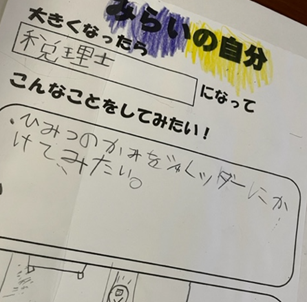 みらいの自分
大きくなったら
税理士
になって
こんなことをしてみたい！
・ひみつのかみをシュレッダーにか
けてみたい。